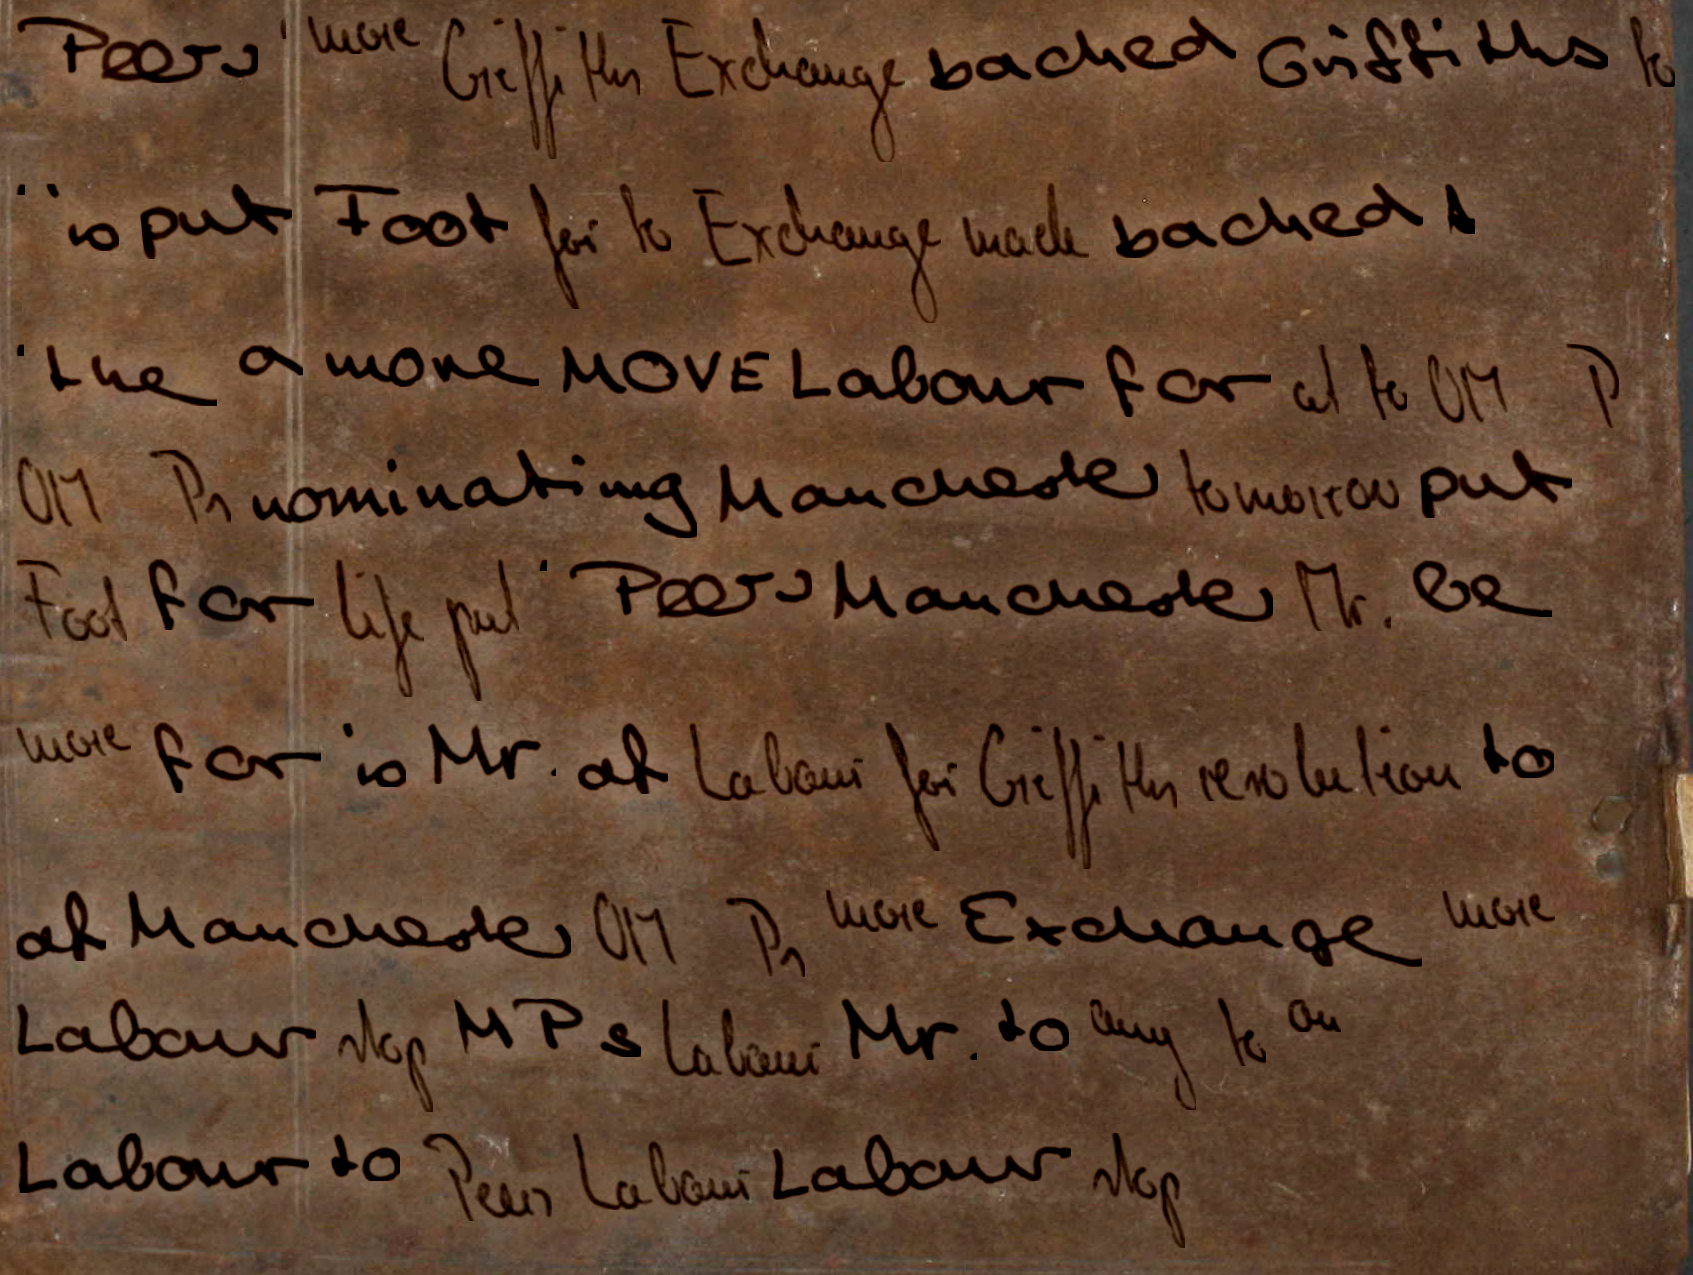 Peers more Griffiths Exchange backed Griffiths to
is put Foot for to Exchange made backed
the a more MOVE Labour for at to OM P
OM Ps nominating Manchester tomorrow put
Foot for life put Peers Manchester Mr. be
more for is Mr. at Labour for Griffiths resolution to
at Manchester OM Ps more Exchange more
Labour stop MPs Labour Mr. to any to an
Labour to Peers Labour Labour stop